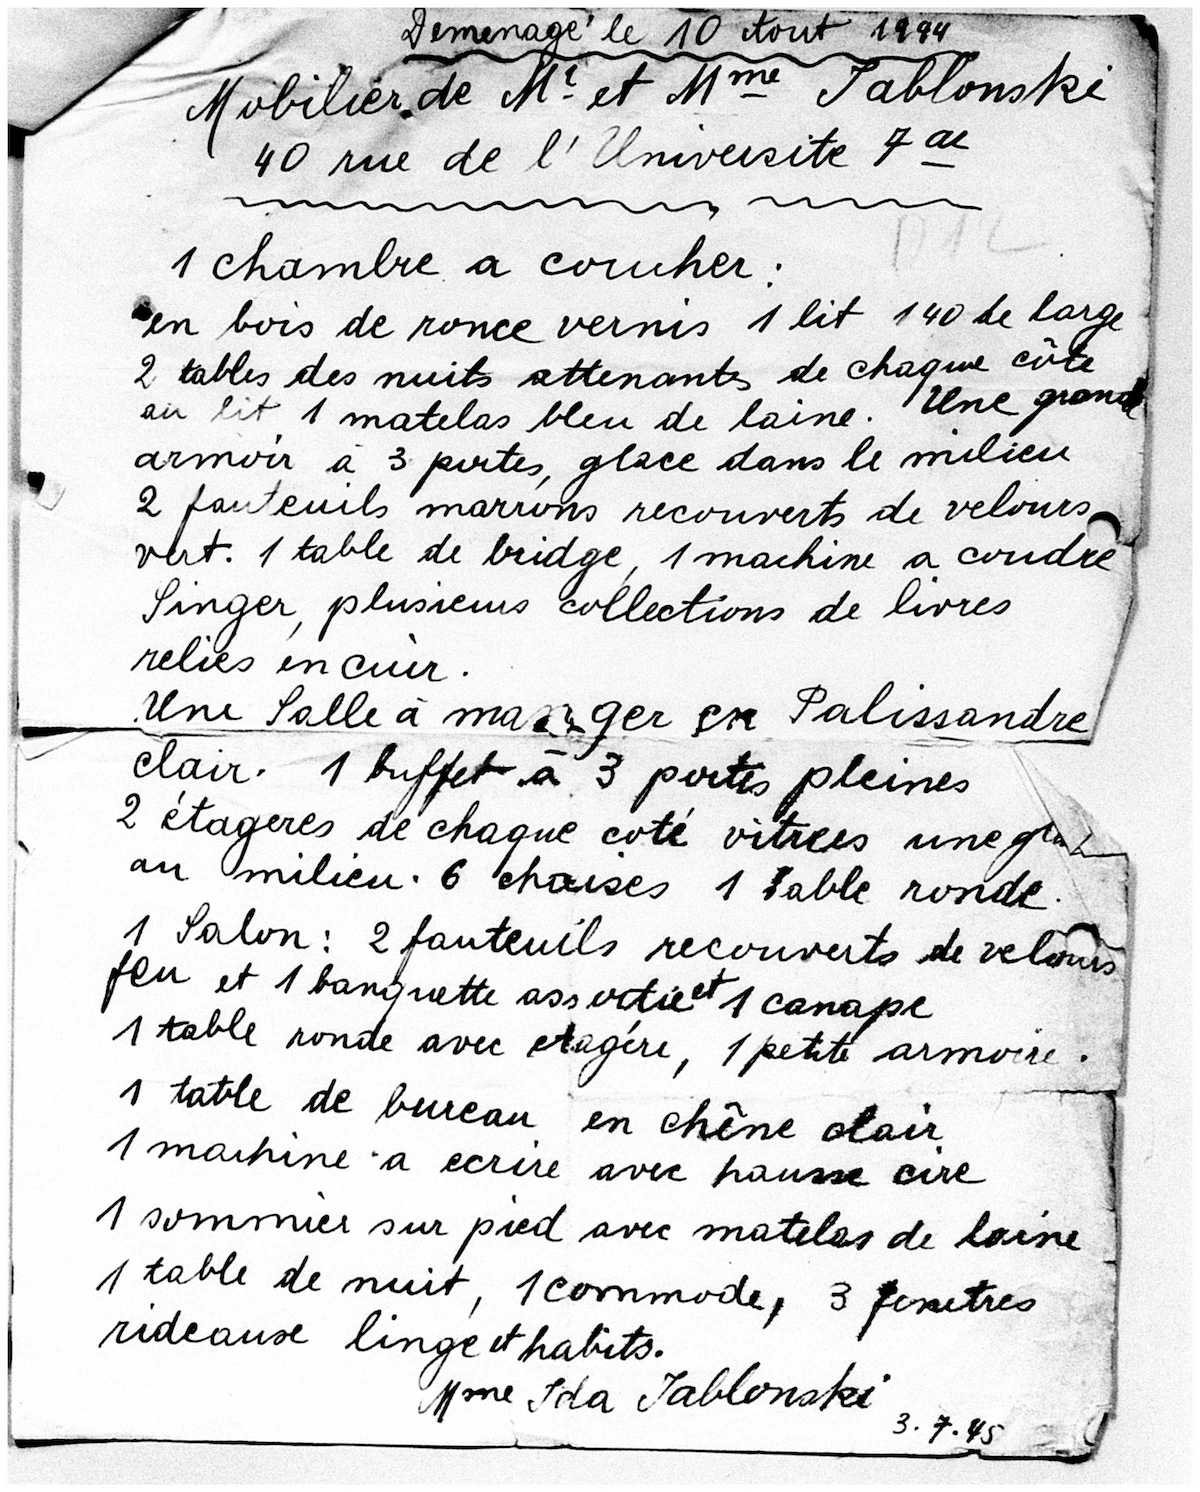 Demenagé le 10 Aout 1944
Mobilier de Mr et Mme Jablonski
40 rue de l'Universite 7 ae
1 chambre a coucher :
en bois de ronce vernis 1 lit 140 de large
2 tables des nuits attenants de chaque côte
au lit 1 matelas bleu de laine. Une grande
armoir à 3 portes, glace dans le milieu
2 fauteuils marrons recouverts de velours
vert. 1 table de bridge, 1 machine a coudre
Singer, plusieurs collections de livres
relies en cuir.
Une Salle à manger en Palissandre
clair. 1 buffet à 3 portes pleines
2 étageres de chaque coté vitrees une
au milieu. 6 chaises 1 table ronde.
1 Salon : 2 fauteuils recouverts de velours
feu et 1 banquette assortie et 1 canape
1 table ronde avec etagére, 1 petite armoire.
1 table de bureau en chêne clair
1 machine a ecrire avec housse cire
1 sommier sur pied avec matelas de laine
1 table de nuit, 1 commode, 3 fenetres
rideause linge et habits.
Mme Ida Jablonski
3.7.45